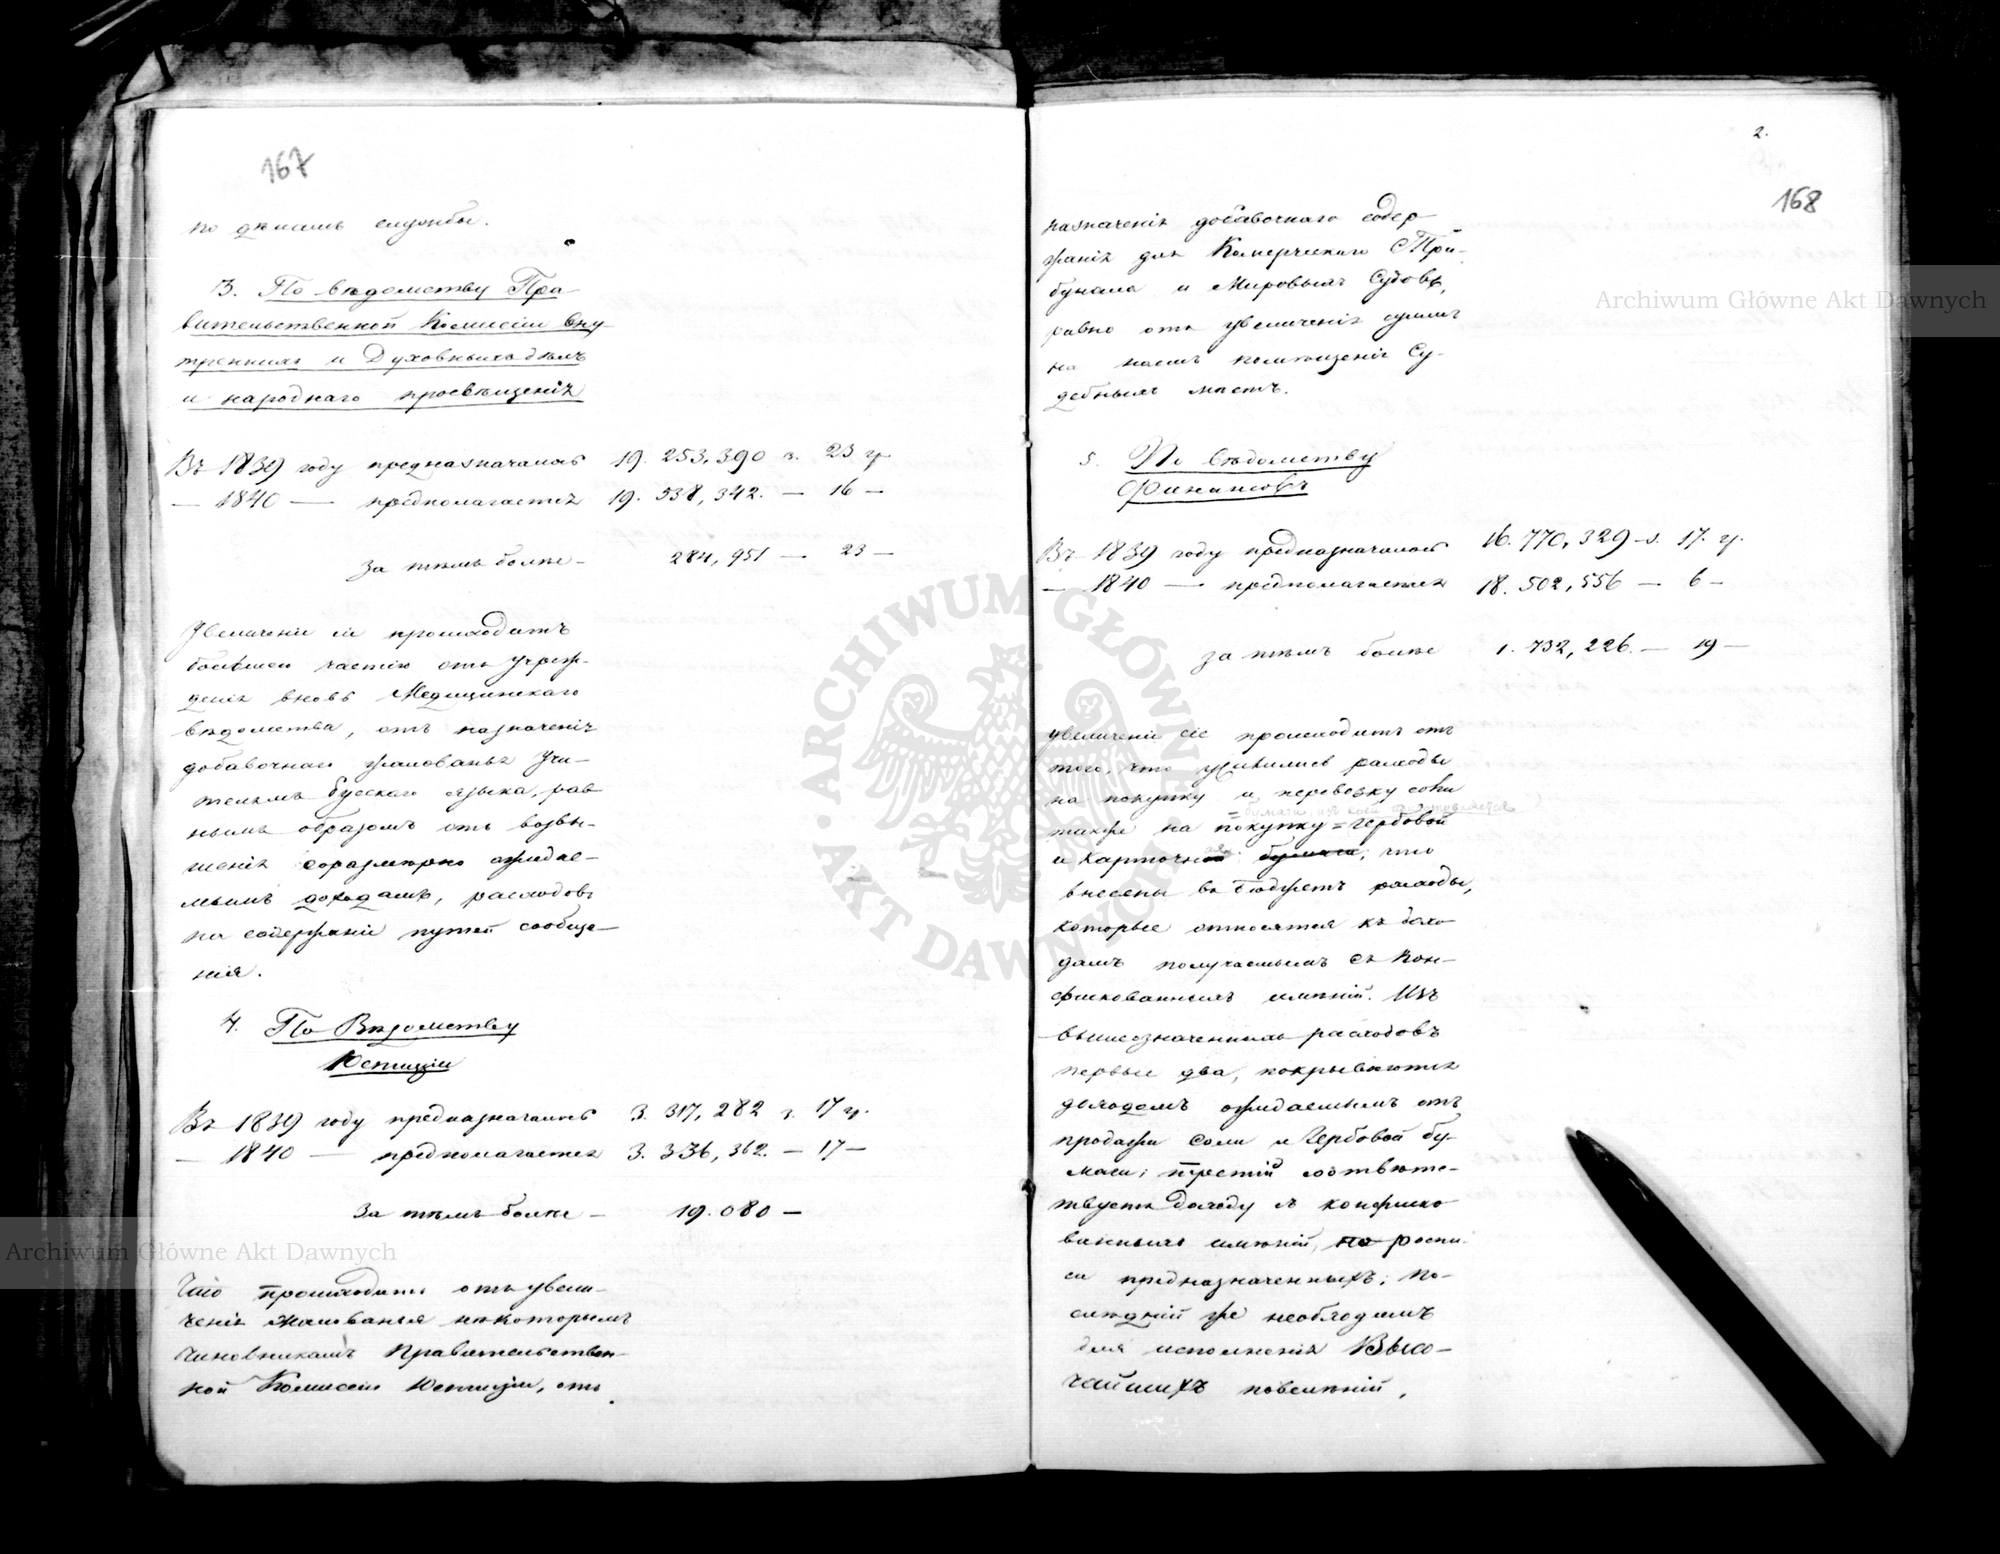 167
по дѣламъ службы.
3. По вѣдомству Пра-
вительственной Комисіи Вну-
треннихъ и Духовныхъ дѣлъ
и народнаго просвѣщенія
Въ 1839 году предназначалось 19.253,390 з. 23 гр.
— 1840 — предполагается 19.538,342. — 16 —
За тѣмъ болѣе — 284,951 — 23 —
Увеличеніе сіе происходитъ
большею частію отъ учреж-
денія вновь Медицинскаго
вѣдомства, отъ назначенія
добавочнаго жалованья Учи-
телямъ Русскаго языка, рав-
нымъ образомъ отъ возвы-
шенія соразмѣрно ожидае-
мымъ доходамъ, расходовъ
на содержаніе путей сообще-
нія.
4. По Вѣдомству
Юстиціи
Въ 1839 году предназначалось 3.317,282 з. 17 гр.
— 1840 — предполагается 3.336,362. — 17 —
За тѣмъ болѣе — 19.080 —
Что происходитъ отъ увели-
ченія жалованья нѣкоторымъ
чиновникамъ Правительствен-
ной Комисіи Юстиціи, отъ
2.
168
назначенія добавочнаго содер-
жанія для Комерческаго Три-
бунала и Мировыхъ Судовъ,
равно отъ увеличенія суммъ
на наемъ помѣщенія Су-
дебныхъ мѣстъ.
5. По вѣдомству
Финансовъ
Въ 1839 году предназначалось 16.770,329 з. 17. гр.
— 1840 — предполагается 18.502,556 — 6 —
за тѣмъ болѣе 1.732,226. — 19 —
увеличеніе сіе происходитъ отъ
того, что усилились расходы
на покупку и перевозку соли
=бумаги изъ коей изготовляется
также на покупку = гербовой
и карточной бумаги; что
внесены въ бюджетъ расходы,
которые относятся къ дохо-
дамъ получаемымъ съ кон-
фискованныхъ имѣній. Изъ
вышеозначенныхъ расходовъ
первые два, покрываются
доходомъ ожидаемымъ отъ
продажи соли и Гербовой бу-
маги; третій соотвѣтс-
твуетъ доходу съ конфиско-
ванныхъ имѣній, по роспи-
си предназначенныхъ; по-
слѣдній же необходимъ
для исполненія Высо-
чайшихъ повелѣній,
Archiwum Główne Akt Dawnych
Archiwum Główne Akt Dawnych
ARCHIWUM GŁÓWNE AKT DAWNYCH